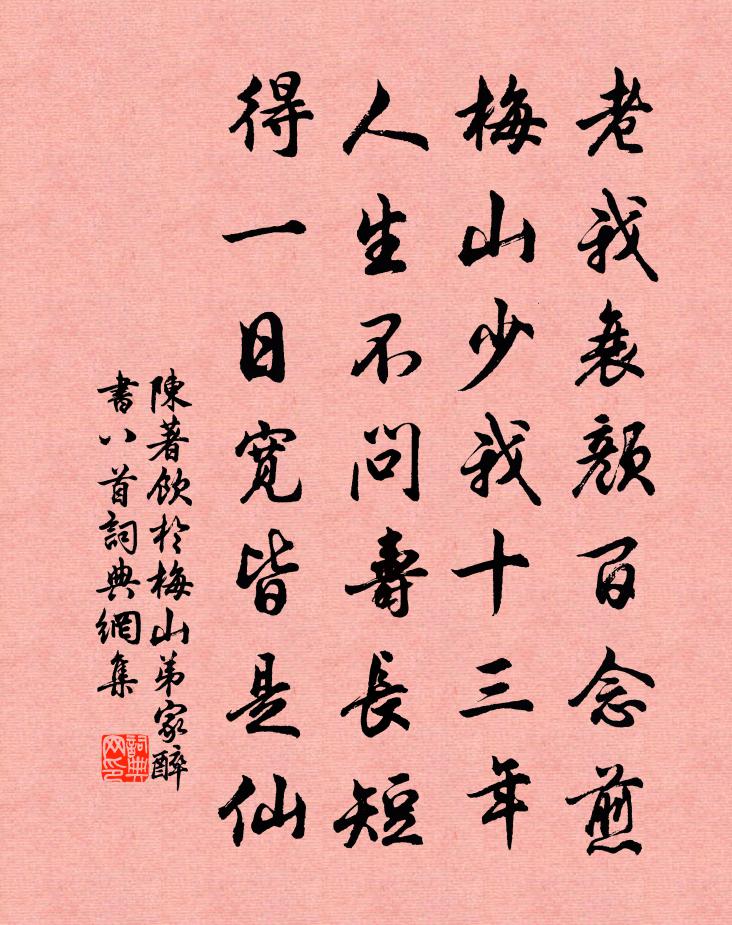 老我衰顏百念煎
梅山少我十三年
人生不問壽長短
得一日寬皆是仙
陳著飲於梅山弟家醉
書八首詞典網集
詞典
网印